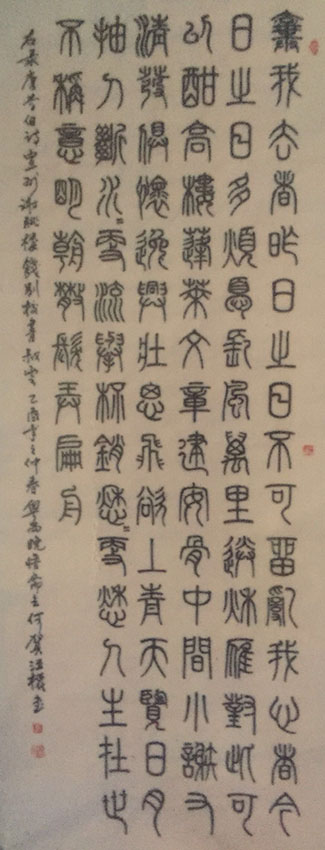 棄我去者昨日之日不可畱亂我心者今
日之日多煩憂長風萬里送秋雁對此可
以酣高樓蓬萊文章建安骨中間小謝又
清發俱懷逸興壯思飛欲上青天覽日月
抽刀斷水〻更流舉杯銷愁〻更愁人生在世
不稱意明朝散髮弄扁舟
右录唐李白詩宣州謝朓樓餞别校書叔雲乙酉年之仲春